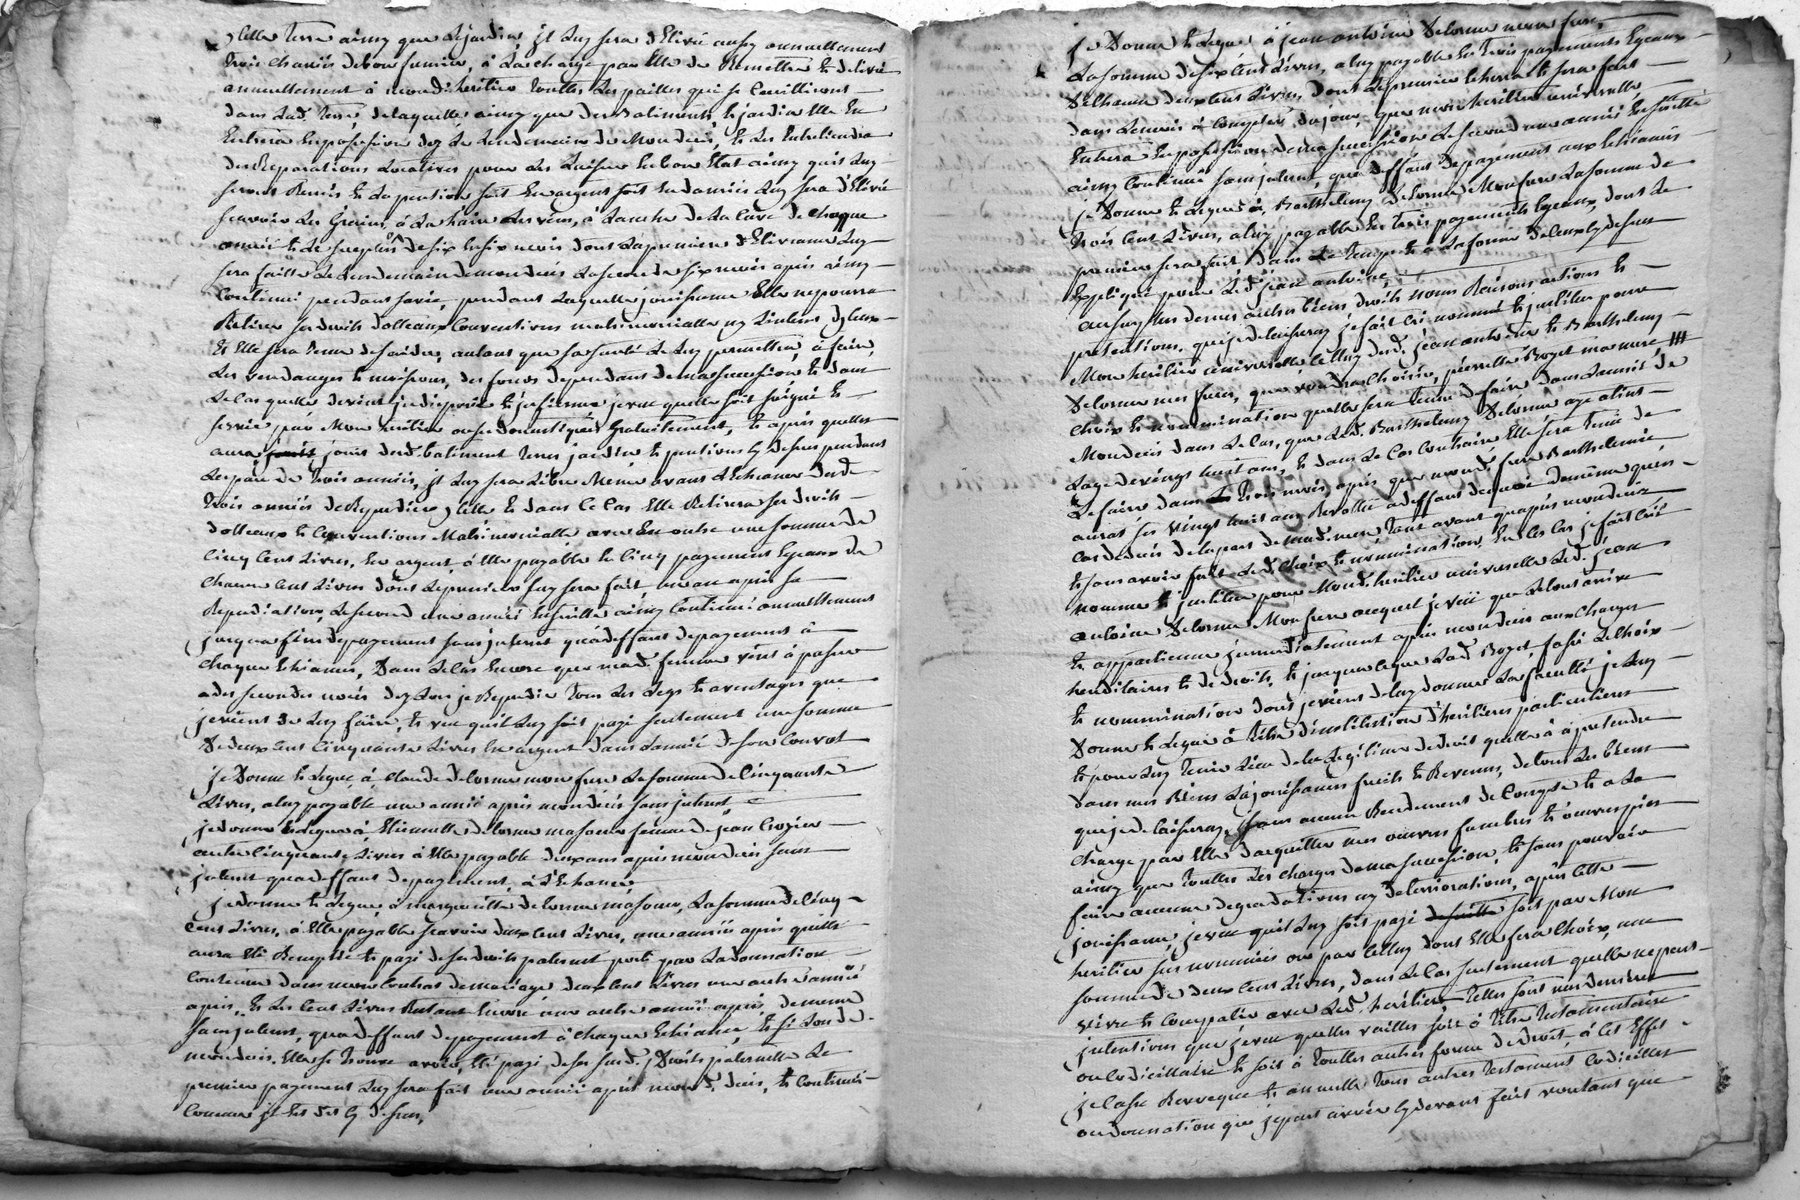 ycelle terre ainsy que le jardin, jl luy sera délivré aussy annuellement
trois chariés de bon fumier, à la charge par elle de remettre et delivré
annuellement à mondit heritier touttes les pailles qui se ceuilliront
dans lad. terre, de laquelle ainsy que des batiments et jardin elle en
entrera en possession dez le lendemain de mon decès, et les entretiendra
des reparations locatives pour les laisser en bon etat ainsy quils luy
seront remis et la pention soit en argent soit en danrées luy sera délivré
scavoir les grains à la les vins, à la cuve de chaque
année et le surplus de six en six mois dont la premiere délivrance luy
sera faitte le lendemain de mon decès la seconde six mois après ainsy
continué pendant sa vie, pendant laquelle jouissance elle ne pourra
retirer ses droits dotteaux conventions matrimonialle ny jnterest d'yceux
et elle sera tenue de s'aider, autant que sa santé le luy permettra, à faire
les vendanges et moissons, des fonds dependans de ma succession et dans
le cas quelle devint jndisposée et jnfirme je veut quelle soit soigné et
servie par mon heritier ou ses domestiques gratuitement, et après quelle
aura jouis desd. batiment terres jardin et pentions cy dessus pendant
lespace de trois années, jl luy sera libre meme avant lechéance desd.
trois années de repudier ycelle et dans ce cas elle retirera ses droits
dotteaux et conventions matrimonialle avec en outre une somme de
cinq cent livres, en argent, à elle payable en cinq payement egeaux de
chacun cent livres dont le premier luy sera fait un an après sa
repudiation, le second une année ensuitte ainsy continué annuellement
jusqua fin de payement sans jnterest qu'à deffaut de payement à
chaque echéance, dans le cas encore que mad. femme vint à passer
a des secondes noces dez lors je repudie tous les legs et avantages que
je viens de luy faire, et veu quil luy soit payé seulement une somme
de deux cent cinquante livres en argent dans l'année de son convol
Je donne et legue, à claude delorme mon frere la somme de cinquante
livres, a luy payable une année après mon decès sans jnterest,
je donne et legue à Etiennette delorme ma soeur femme de jean Crozier
autre cinquante livres à elle payable deux ans après mon decès sans
jnterest qua deffaut de payement à l'echéance,
je donne et legue, à margueritte delorme ma soeur, la somme de cinq
cent livres, à elle payable scavoir deux cent livres, une année après quelle
aura eté remplie et payé de ses droits paternels porté par la donnation
contenue dans mon contrat de mariage deux cent livres une autre année
après, et les cent livres restant encore une autre année après, de meme
sans jnterest, qua deffaut de payement à chaque echéance, et si lors de
mon decès elle se trouve avoir, eté payé de ses susd. droits paternelle le
premier payement luy sera fait une année après mond. decès, et continué
comme jl est dit cy dessus,
je donne et legue à jean antoine delorme mon frere,
la somme de six cent livres, a luy payable en trois payements egeaux
de chacun deux cent livres, dont le premier echerra et sera fait
dans le mois à compter du jour que mon heritier universelle
entrera en possession de ma succession le second une année ensuitte
ainsy continué sans jnterest, qua deffaut de payement aux echéances
je donne et legue à, Barthelemy delorme mon frere la somme de
trois cent livres, a luy payable en trois payements egeaux, dont le
premier sera fait dans le temps et a la forme de ceux cy dessus
expliqué pour led. jean antoine,
au surplus de mes autres biens, droits noms raisons actions et
pretentions, que je delaisseray je fait crée nomme et jnstitue pour
mon heritier universelle celluy desd. jean antoine et Barthelemy
delorme mes freres, que voudra choisir, pierrette Boyet ma mere
choix et nommination quelle sera tenue de faire dans l'année de
mon decès dans le cas, que led. Barthelemy delorme aye atteint
lage de vingt huit ans, et dans le cas contraire elle sera tenue de
le faire dans trois mois après que mond. frere Barthelemie
aurat ses vingt huit ans revollu a deffaut de quoi de meme quen
cas de decès de la part de mad. mere, tant avant quaprès mon decès
et sans avoir fait led. choix et nommination, en ces cas je fait crée
nomme et jnstitue pour mond. heritier universelle led. jean
antoine delorme mon frere auquel je veu que le tout arrive
et appartienne jmmediatement après mon decès aux charges
hereditaires et de droits, et jusqua ce que lad. Boyet fasse le choix
et nommination dont je viens de luy donner la faculté je luy
donne et legue à titre d'jnstitution d'heritiere particuliere
et pour luy tenir lieu de la legitime de droit quelle a à pretendre
dans mes biens la jouissances fruits et revenus, de tous les biens
que je delaisseray, sans aucun rendement de compte et a la
charge par elle d'acquitter mes oeuvres funebres et oeuvres pies
ainsy que touttes les charges de ma succession, et sans pouvoir
faire aucune degradations ny deteriorations, après cette
jouissance, je veu quil luy soit payé soit par mon
heritier sus nommé ou par celluy dont elle fera choix, une
somme de deux cent livres, dans le cas seulement quelle ne peut
vivre et compatir avec led. heritier, telles sont mes dernieres
jntentions que je veu quelles vailles soit à titre testamentaire
ou codicillaire et soit à touttes autres forme de droit, à cet effet
je casse revoque et annulle tous autres testament codicilles
ou donnation que je peut avoir cy devant fait voulant que